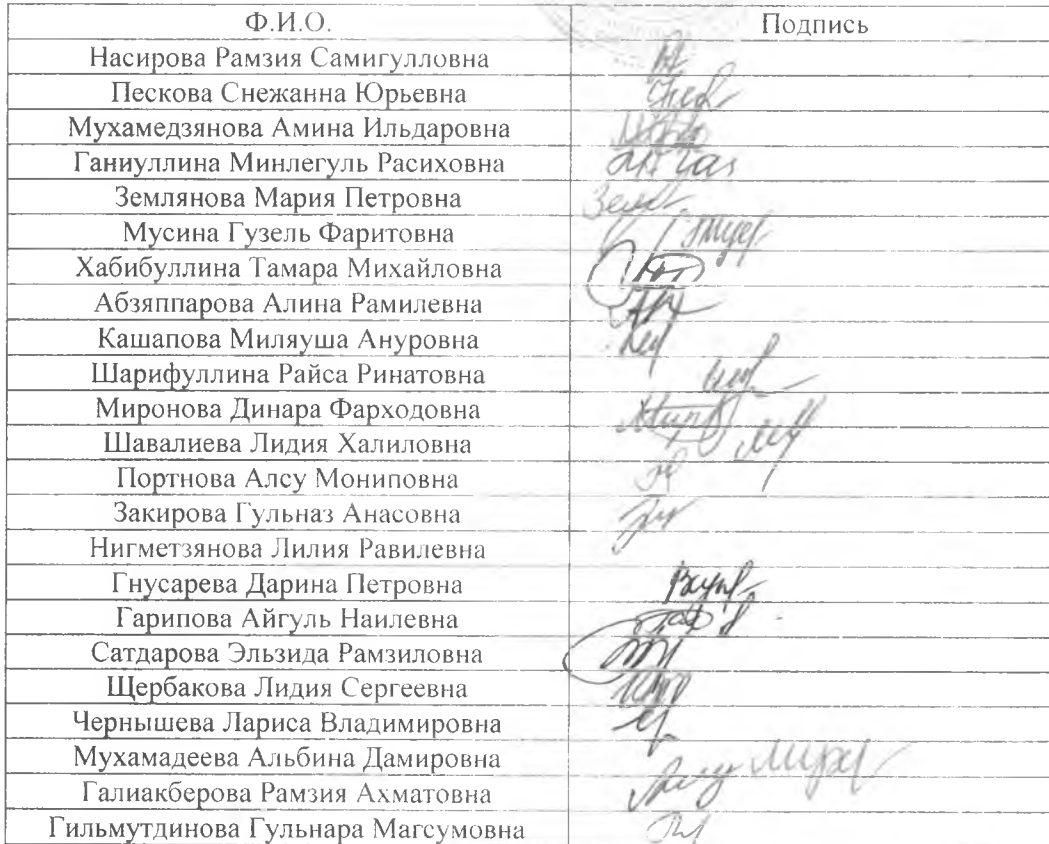 Ф.И.О. Подпись
Насирова Рамзия Самигулловна
Пескова Снежанна Юрьевна
Мухамедзянова Амина Ильдаровна
Ганиуллина Минлегуль Расиховна
Землянова Мария Петровна
Мусина Гузель Фаритовна
Хабибуллина Тамара Михайловна
Абзяппарова Алина Рамилевна
Кашапова Миляуша Ануровна
Шарифуллина Райса Ринатовна
Миронова Динара Фарходовна
Шавалиева Лидия Халиловна
Портнова Алсу Мониповна
Закирова Гульназ Анасовна
Нигметзянова Лилия Равилевна
Гнусарева Дарина Петровна
Гарипова Айгуль Наилевна
Сатдарова Эльзида Рамзиловна
Щербакова Лидия Сергеевна
Чернышева Лариса Владимировна
Мухамадеева Альбина Дамировна
Галиакберова Рамзия Ахматовна
Гильмутдинова Гульнара Магсумовна